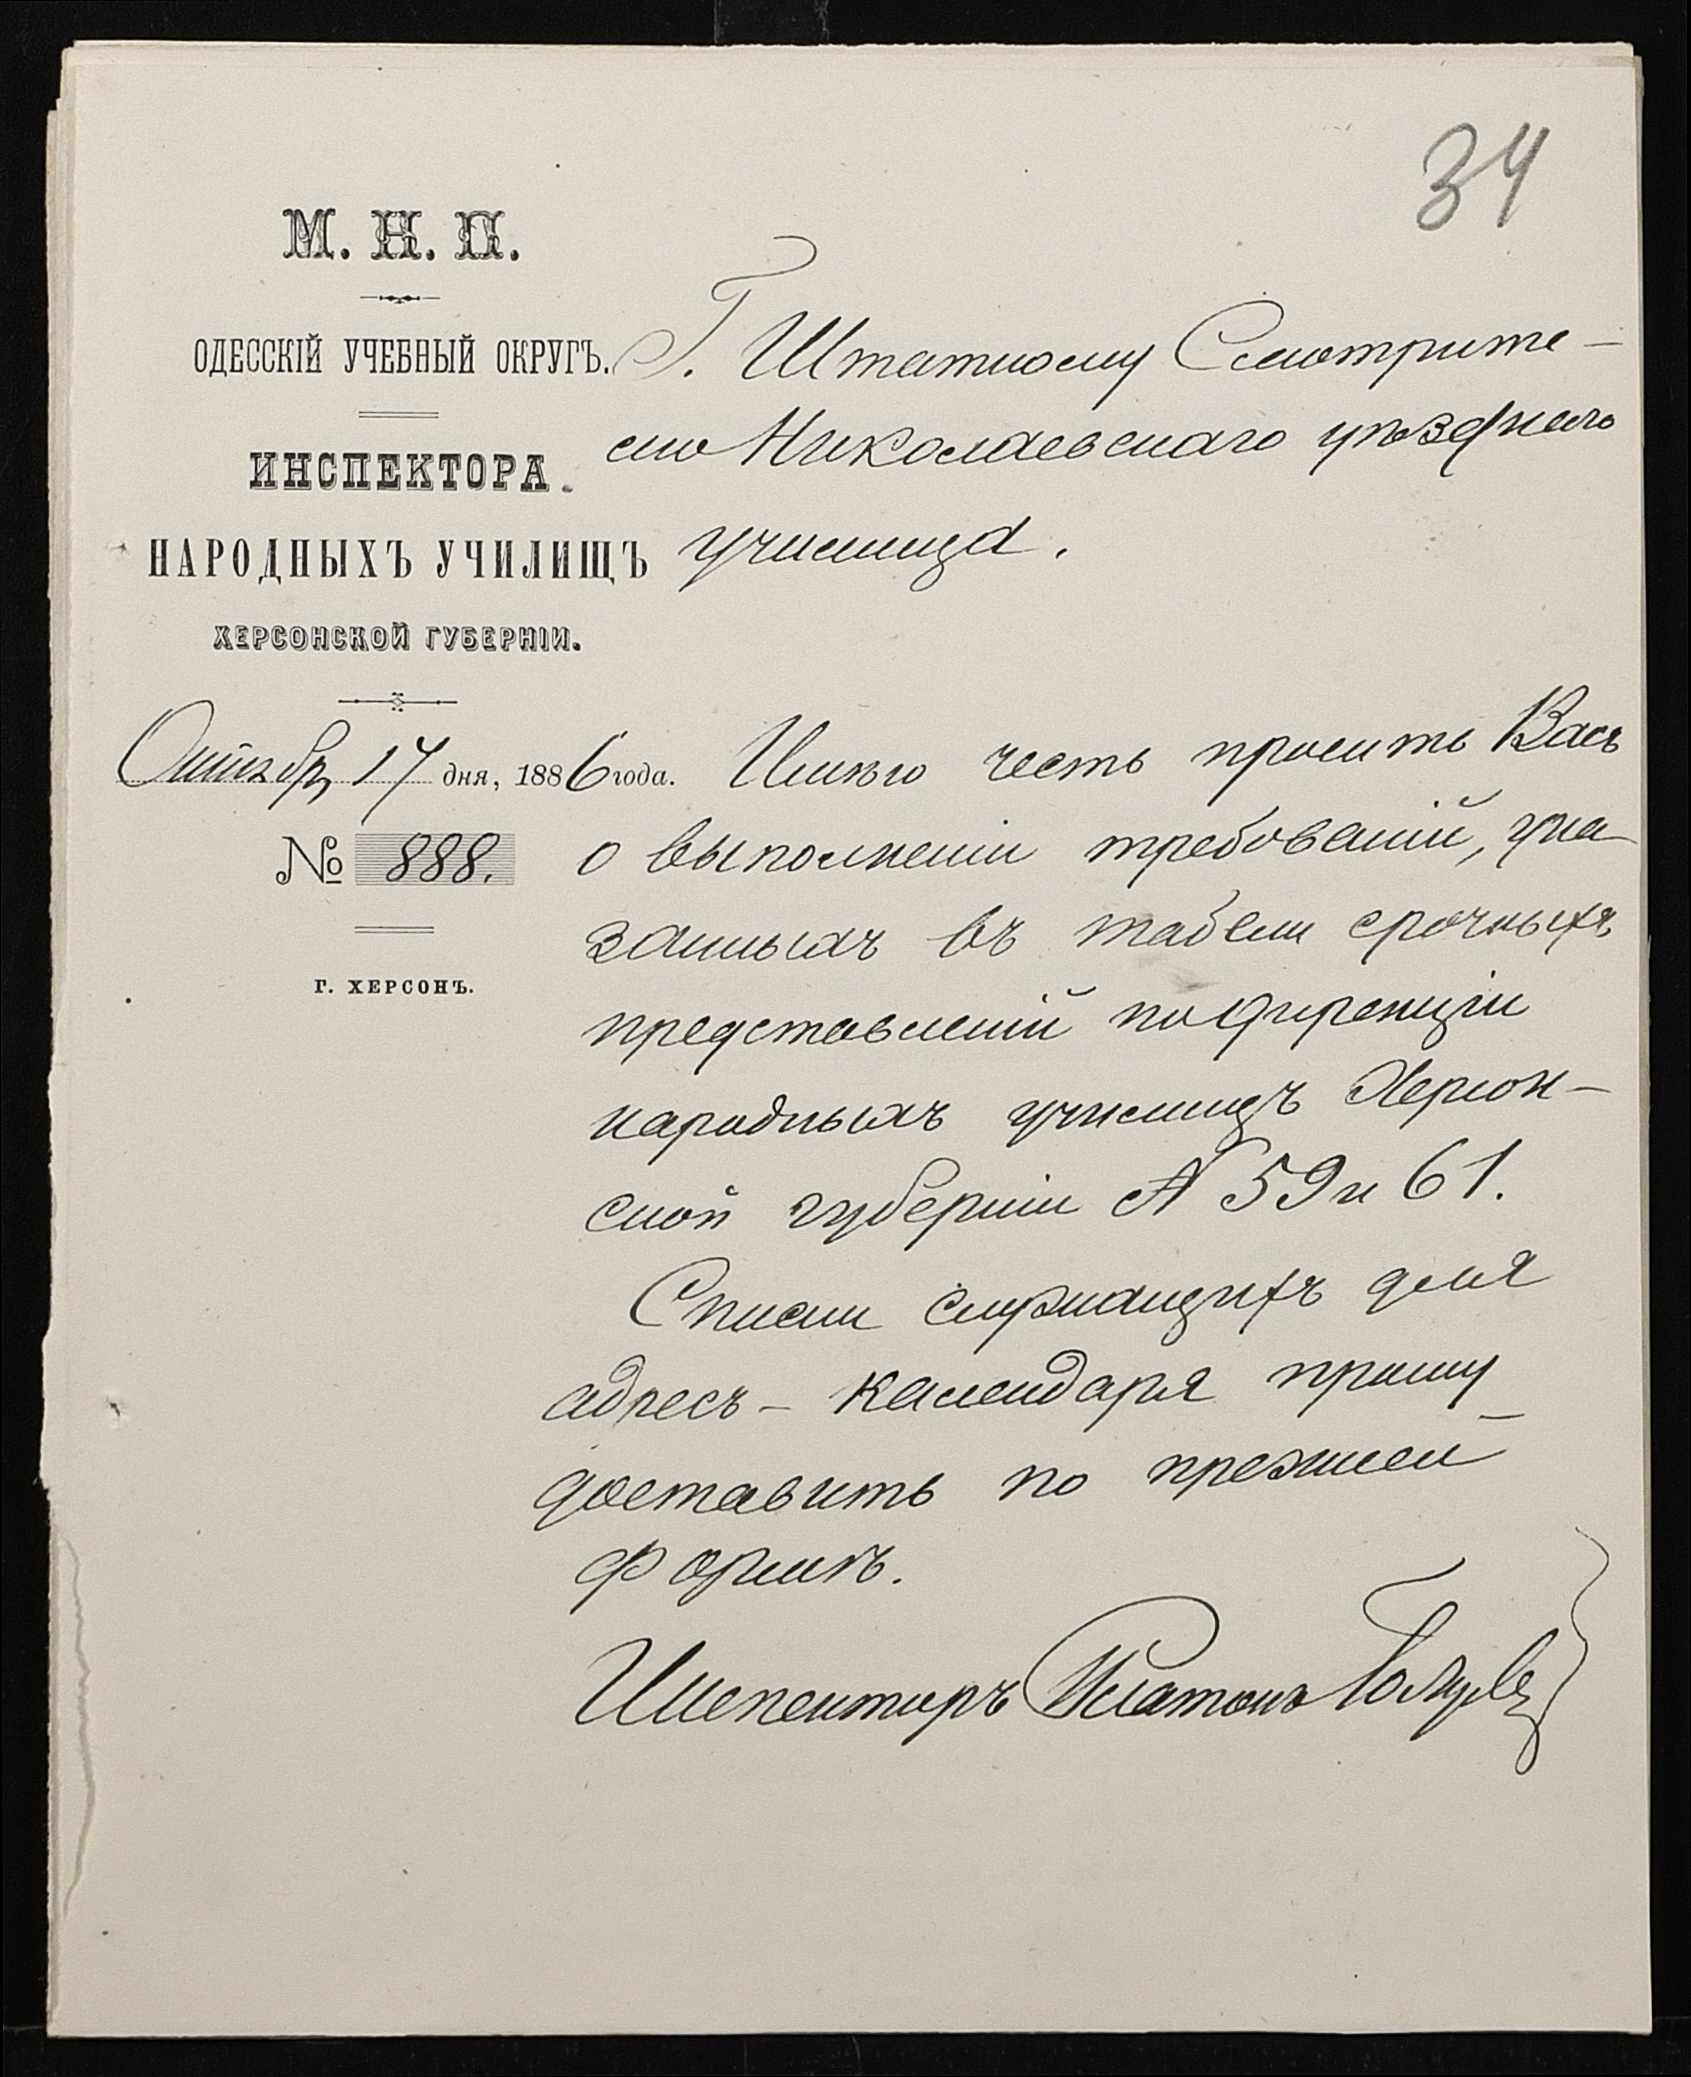 34
М. Н. П.
ОДЕССКІЙ УЧЕБНЫЙ ОКРУГЪ.
ИНСПЕКТОРА
НАРОДНЫХЪ УЧИЛИЩЪ
ХЕРСОНСКОЙ ГУБЕРНІИ.
Октября 17 дня, 1886 года.
№ 888.
Г. ХЕРСОНЪ.
Г. Штатному Смотрите-
лю Николаевскаго уѣзднаго
училища.
Имѣю честь просить Васъ
о выполненіи требованій, ука
занныхъ въ табели срочныхъ
представленій по дирекціи
народныхъ училищъ Херсон-
ской губерніи № 59 и 61.
Списки служащихъ для
адресъ-календаря прошу
доставить по прежней
формѣ.
Инспекторъ Платонъ